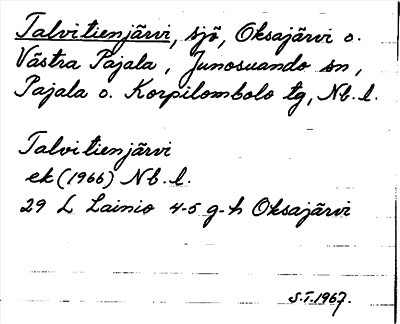 Talvitienjärvi, sjö, Oksajärvi o.
Västra Pajala, Junosuando sn,
Pajala o. Korpilombolo tg, Nb. l.
Talvitienjärvi
ek (1966) Nb. l.
29 L Lainio 4-5 g-h Oksajärvi
S.T. 1967.